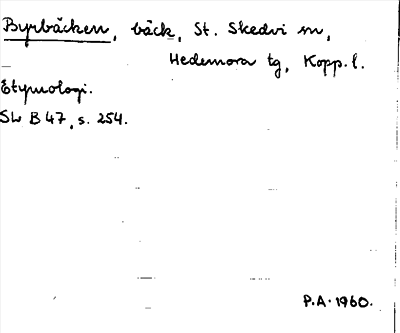 Byrbäcken, bäck, St. Skedvi sn,
Hedemora tg, Kopp. l.
Etymologi.
SW B 47, s. 254.
P.A. 1960.